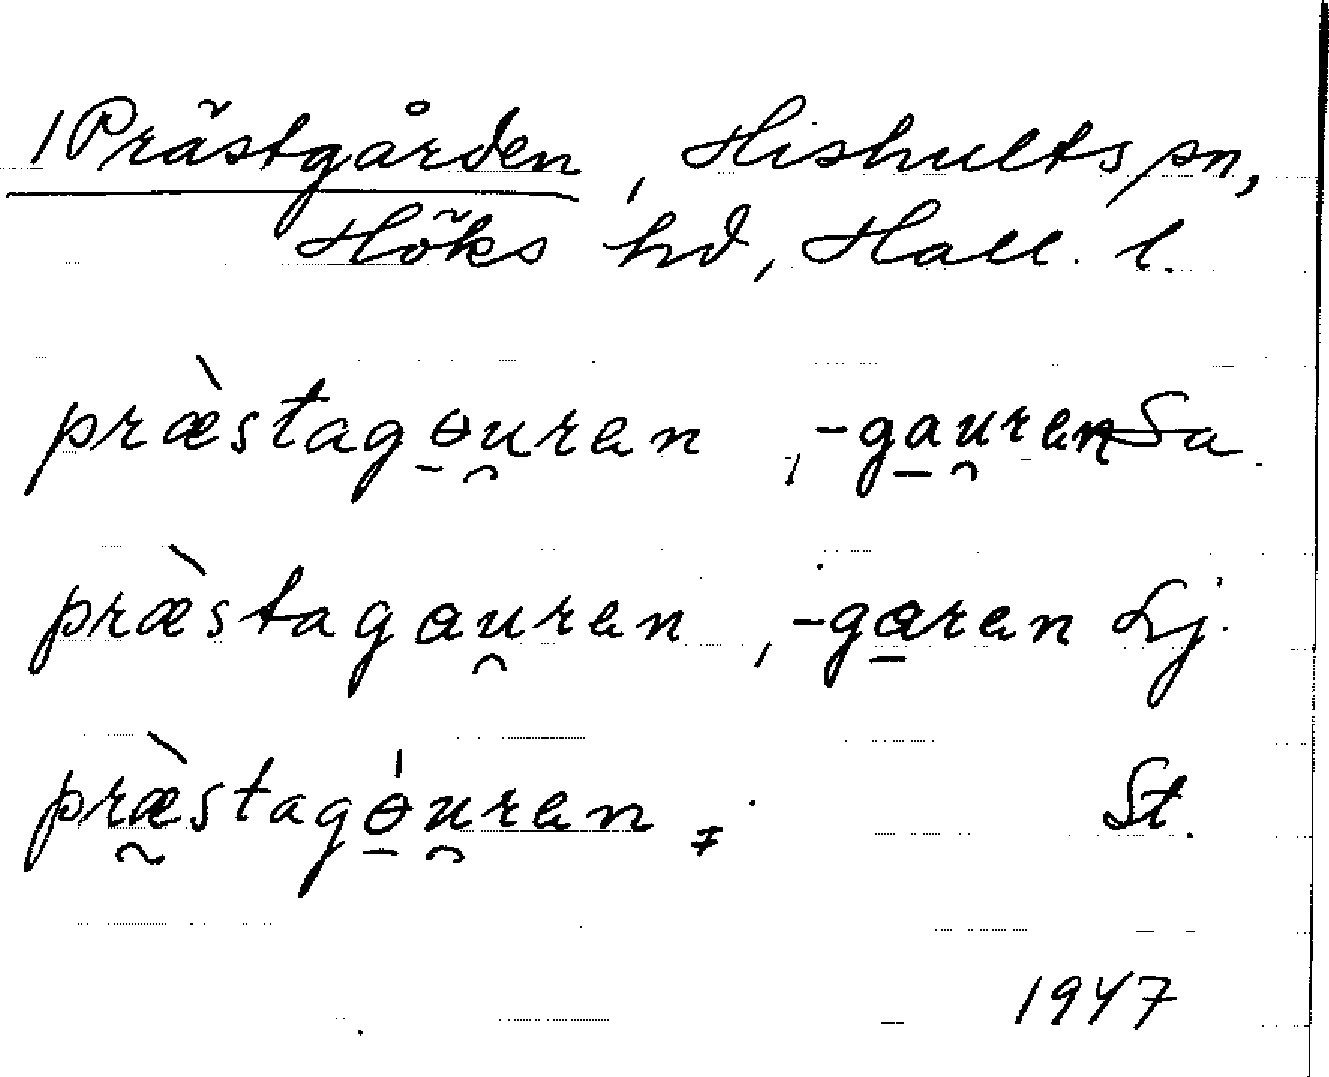 /Prästgården, Hishults sn,
Höks hd, Hall. l.
præ̀stagɵu̯ren, -gau̯ren Sa
præ̀stagau̯ren, -garen Lj.
præ̀stagɵ́u̯ren, St.
1947